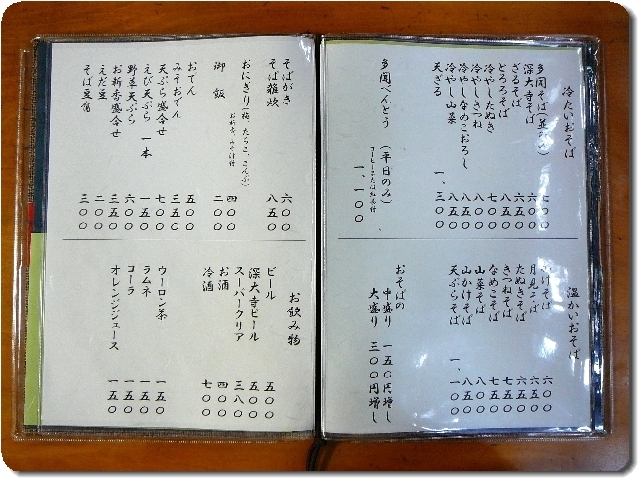 冷たいおそば
多聞そば(並のみ) 七〇〇
深大寺そば 六五〇
ざるそば 六〇〇
とろろそば 八五〇
冷やしたぬき 七〇〇
冷やしきつね 八〇〇
冷やしなめこおろし 八五〇
冷やし山菜 八五〇
天ざる 一、三〇〇
多聞べんとう (平日のみ) 一、一〇〇
コーヒーまたは紅茶付
温かいおそば
かけそば 六〇〇
月見そば 六五〇
たぬきそば 六五〇
きつねそば 七五〇
なめこそば 七五〇
山菜そば 八〇〇
山かけそば 八五〇
天ぷらそば 一、一〇〇
おそばの
中盛り 一五〇円増し
大盛り 三〇〇円増し
そばがき 六〇〇
そば雑炊 八五〇
おにぎり(梅、たらこ、こんぶ) 四〇〇
お新香、みそ汁付
御飯 二〇〇
おでん 五〇〇
みそおでん 三五〇
天ぷら盛合せ 七〇〇
えび天ぷら 一本 一五〇
野草天ぷら 六〇〇
お新香盛合せ 三五〇
えだ豆 二〇〇
そば豆腐 三〇〇
お飲み物
ビール 五〇〇
深大寺ビール 五〇〇
スーパークリア 三八〇
お酒 四〇〇
冷酒 七〇〇
ウーロン茶 一五〇
ラムネ 一五〇
コーラ 一五〇
オレンジジュース 一五〇